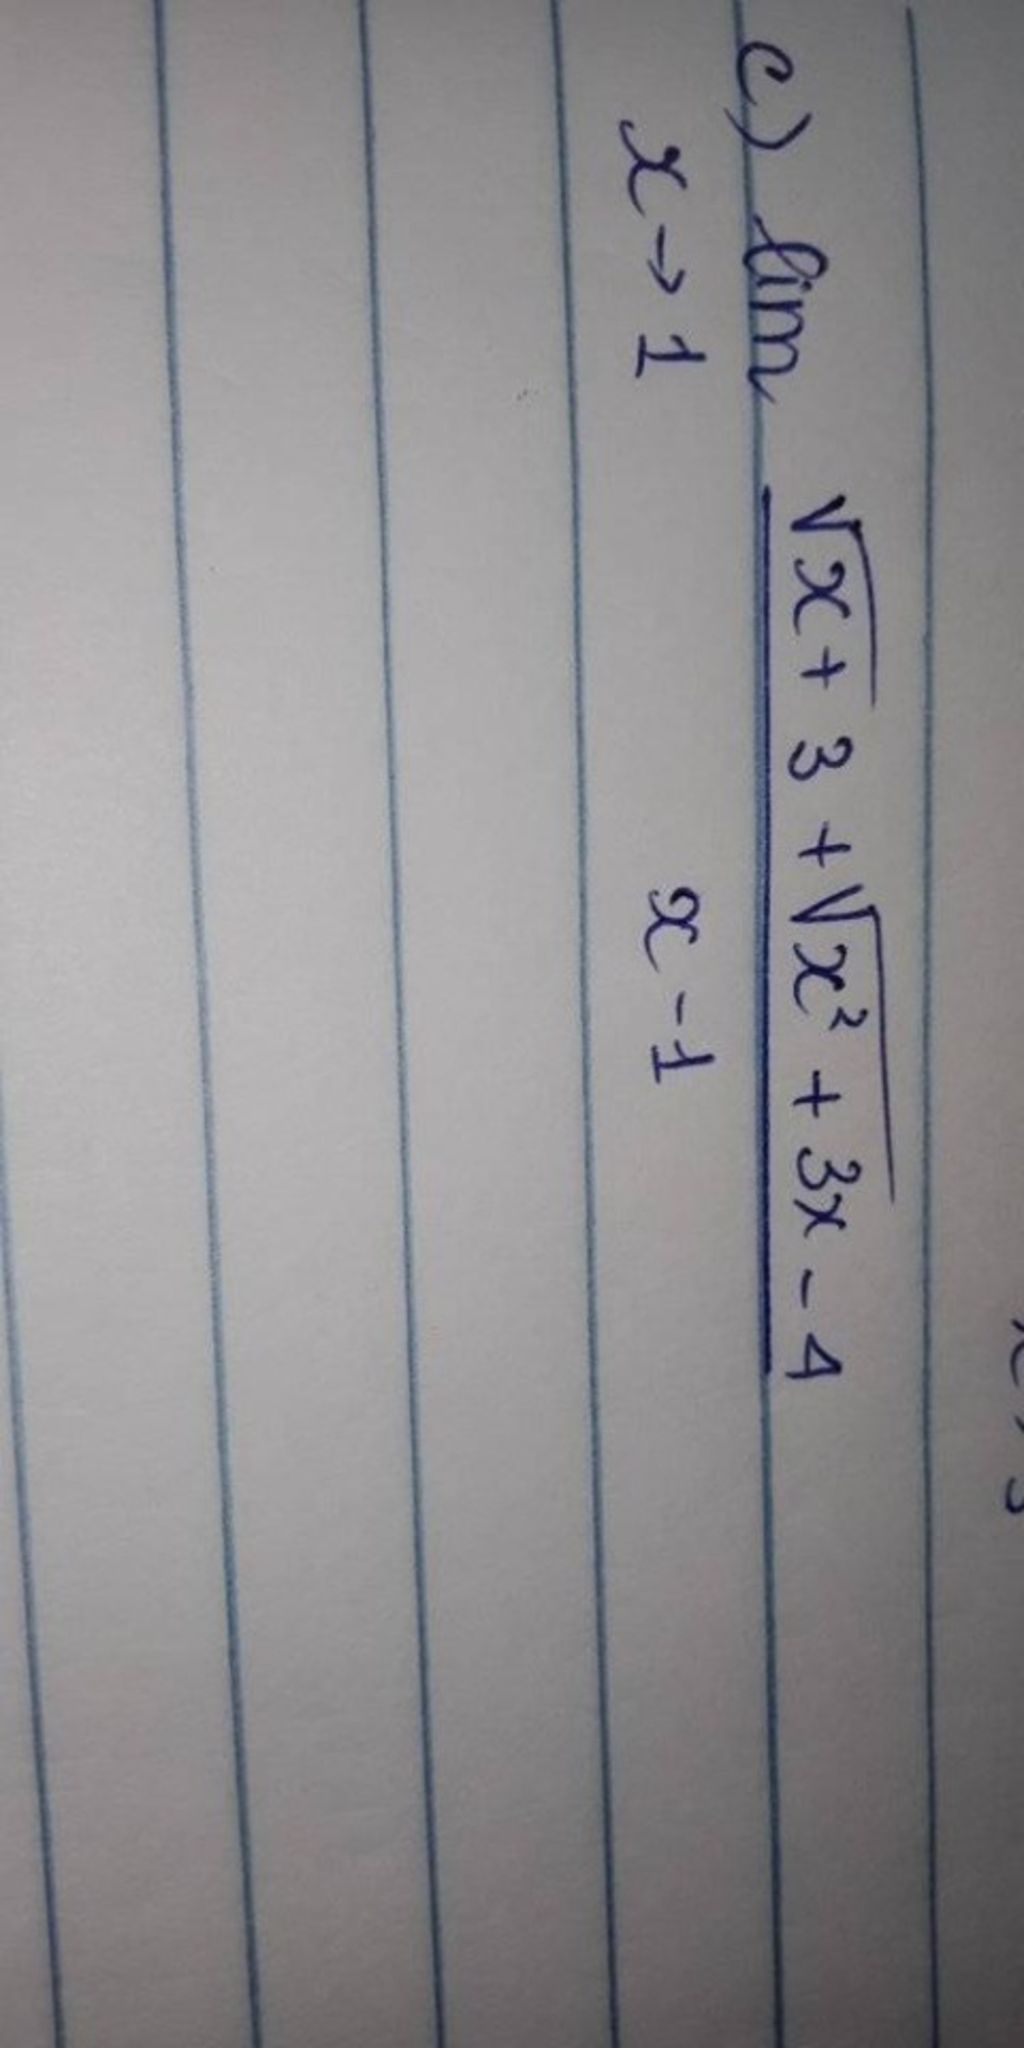 c) lim x→1 (√x + 3 + √x² + 3x - 4) / (x - 1)